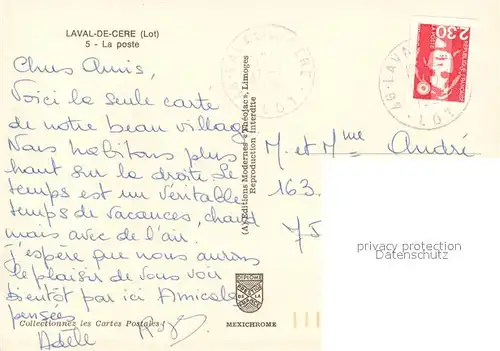 LAVAL-DE-CERE (Lot)
5 - La poste
Chers Amis,
Voici la seule carte
de notre beau village
Nous habitons plus
haut sur la droite. Le
temps est un véritable
temps de vacances, chaud
mais avec de l'air.
J'espère que nous aurons
le plaisir de vous voir
bientôt par ici Amicales
pensées
Adèle
Collectionnez les Cartes Postales !
(A) Editions Modernes « Théojac », Limoges
Reproduction Interdite
MEXICHROME
2,30
LA POSTE
REPUBLIQUE FRANÇAISE
46 - LAVAL
LOT
M. et Mme André
163
75
privacy protection
VINTAGE MANIACS